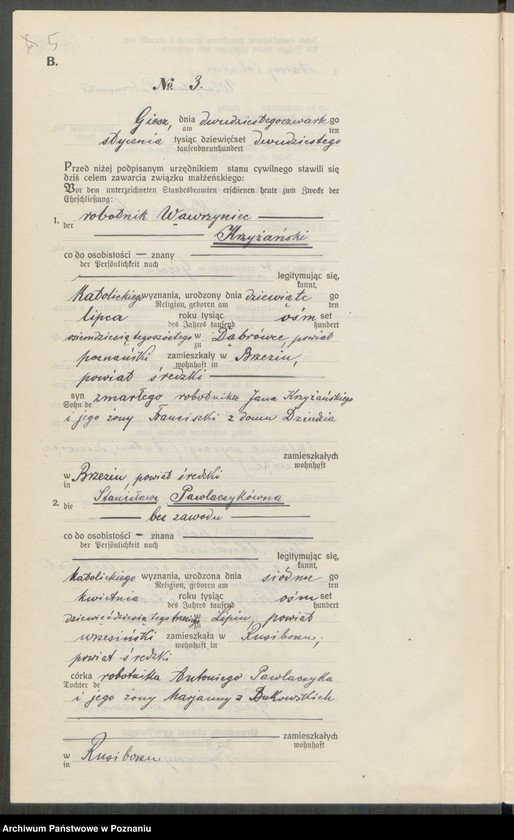 5
B.
No. 3.
Giecz, dnia dwudziestegoczwart go
am ten
stycznia tysiąc dziewięćset dwudziestego
tausendneunhundert
Przed niżej podpisanym urzędnikiem stanu cywilnego stawili się
dziś celem zawarcia związku małżeńskiego:
Vor dem unterzeichneten Standesbeamten erschienen heute zum Zwecke der
Eheschließung:
1. robotnik Wawrzyniec
der
Krzyżański
co do osobistości — znany
der Persönlichkeit nach
legitymując się,
kannt,
katolickiego wyznania, urodzony dnia dziewiąte go
Religion, geboren am ten
lipca roku tysiąc ośm set
des Jahres tausend hundert
w Dąbrówce, powiat
zu
poznański zamieszkały w Brzeziu,
wohnhaft in
powiat średzki
syn zmarłego robotnika Jana Krzyżańskiego
Sohn de
i jego żony Franciszki z domu Dzindzia
zamieszkałych
wohnhaft
w Brzeziu, powiat średzki
in
2. Stanisława Pawlaczykówna
die
bez zawodu
co do osobistości — znana
der Persönlichkeit nach
legitymując się,
kannt,
katolickiego wyznania, urodzona dnia siódme go
Religion, geboren am ten
kwietnia roku tysiąc ośm set
des Jahres tausend hundert
w Lipiu, powiat
zu
wrzesiński zamieszkała w Rusiborzu,
wohnhaft in
powiat średzki
córka robotnika Antoniego Pawlaczyka
Tochter de
i jego żony Marjanny z Bukowskich
zamieszkałych
wohnhaft
w Rusiborzu
in
Archiwum Państwowe w Poznaniu